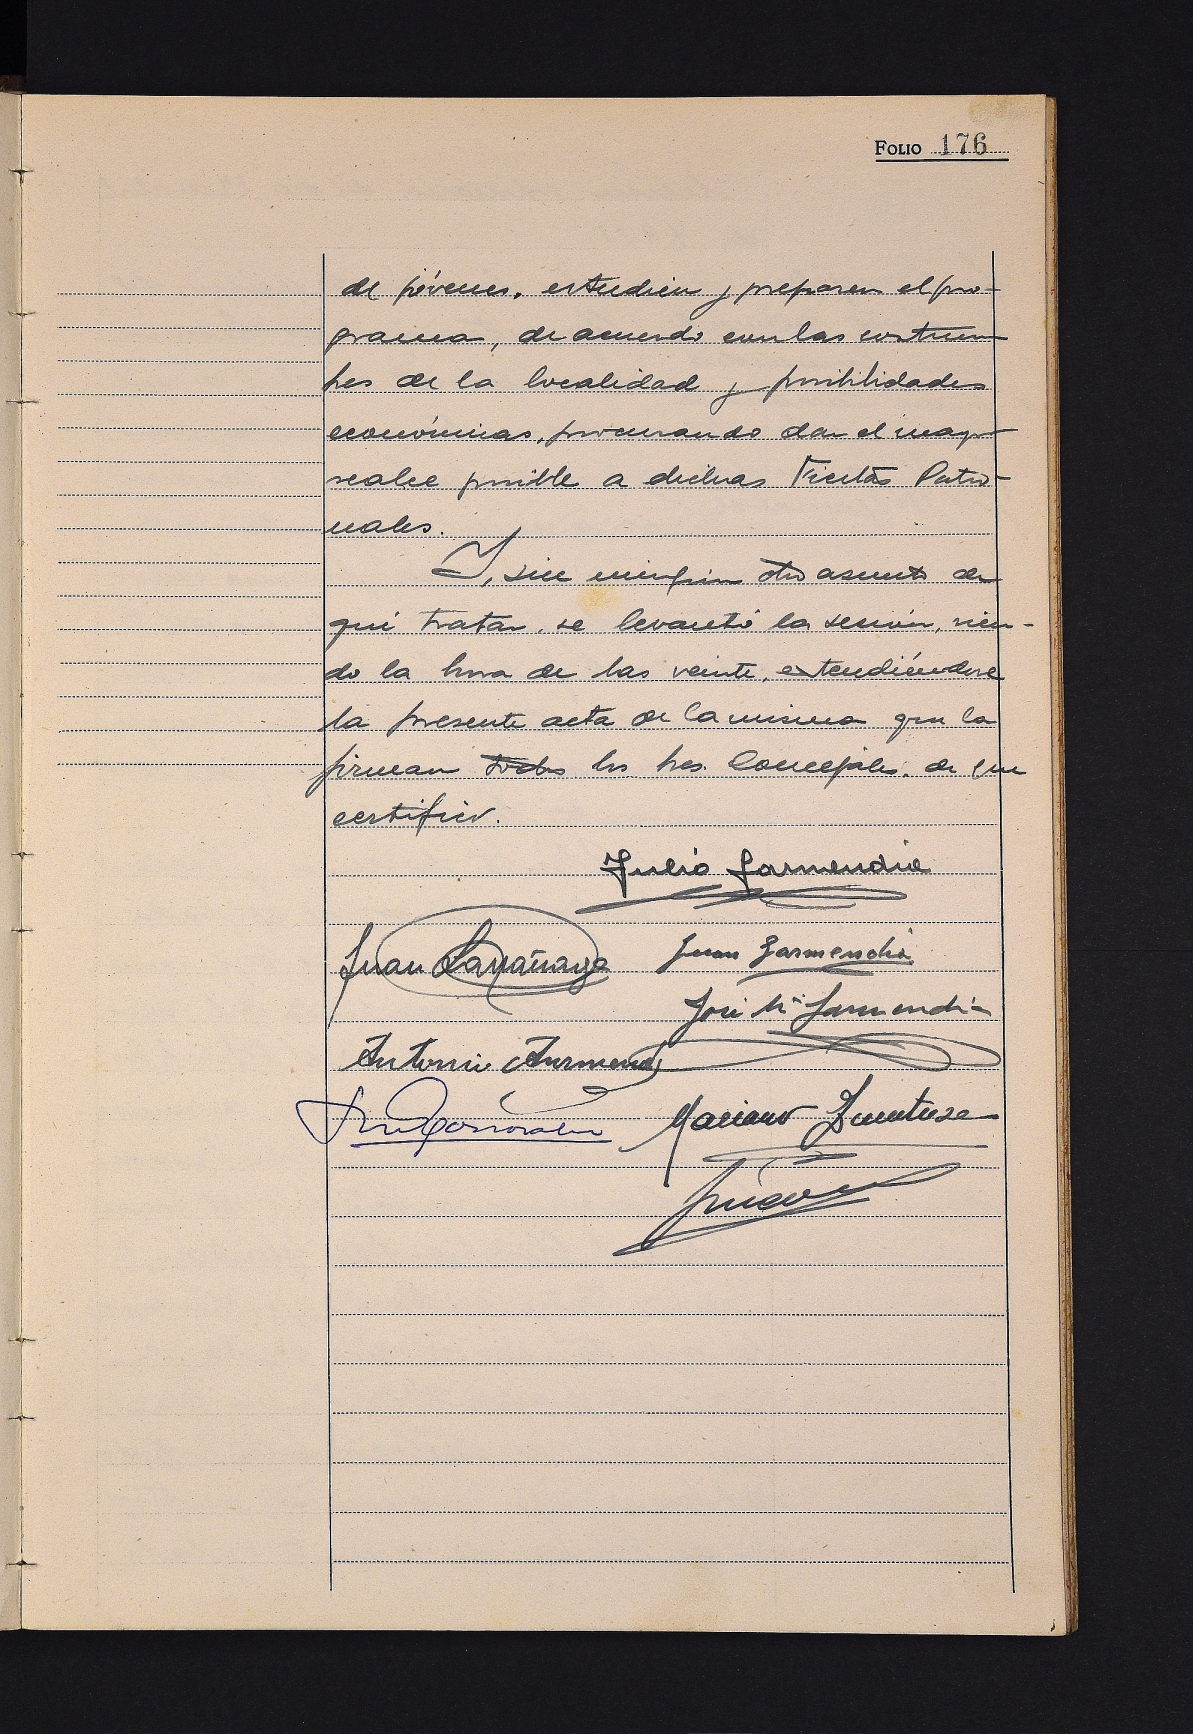 FOLIO 176
de jóvenes, estudien y preparen el pro-
grama, de acuerdo con las costum
bres de la localidad y posibilidades
económicas, procurando dar el mayor
realce posible a dichas Fiestas Patro-
nales.
Y, sin ningún otro asunto de
qué tratar, se levantó la sesión, sien-
do la hora de las veinte, extendiéndose
la presente acta de la misma que la
firman todos los Sres. Concejales, de que
certifico.
Julio Garmendia
Juan Larrañaga Juan Garmendia
José Mª Garmendia
Antonio
Mariano